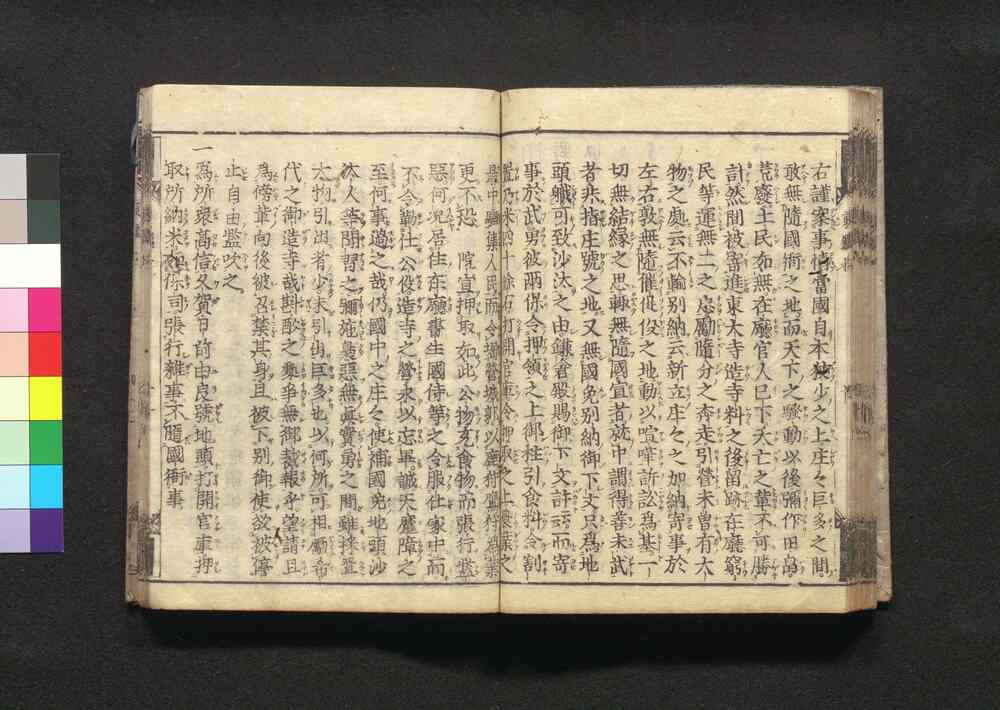 右謹案事情當國自本狹少之上庄々巨多之間
敢無隨國衙之地而天下之騷動以後彌作田畠
荒廢土民如無在廳官人已下夭亡之輩不可勝
計然間被寄進東大寺造寺料之後留跡在廳窮
民等運無二之忠勵隨分之奔走引營未曾有大
物之處云不輸別納云新立庄々之加納寄事於
左右敢無隨催促役之地動以喧嘩訴訟爲基一
切無結緣之思轉無隨國宣者就中謂得善末武
者非指庄號之地又無國免別納御下文只爲地
頭職可致沙汰之由鎌倉殿賜御下文許云而寄
事於武勇彼兩保令押領之上御柱引食料令割
置乃米四十餘石打開官庫令押取之上農業之
最中驅集人民而令增營城郭以鹿狩鷹狩爲業
更不恐 院宣押取如此公物充食物而張行濫
惡何況居住在廳書生國侍等之令服仕家中而
不令勤仕公役造寺之營永以忘畢誠天魔障之
至何事過之哉仍國中之庄々使補國免地頭沙
汰人等聞習之彌施梟惡無眞實勇之間雖採置
大物引出者少未引出巨多也以何所可相勵希
代之御造寺哉斟酌之類爭無御裁報乎望請且
爲傍輩向後被召禁其身且被下別御使欲被停
止自由濫吹之
一
爲所衆高信久賀日前由良號地頭打開官庫押
取所納米如保司張行雜事不隨國衙事